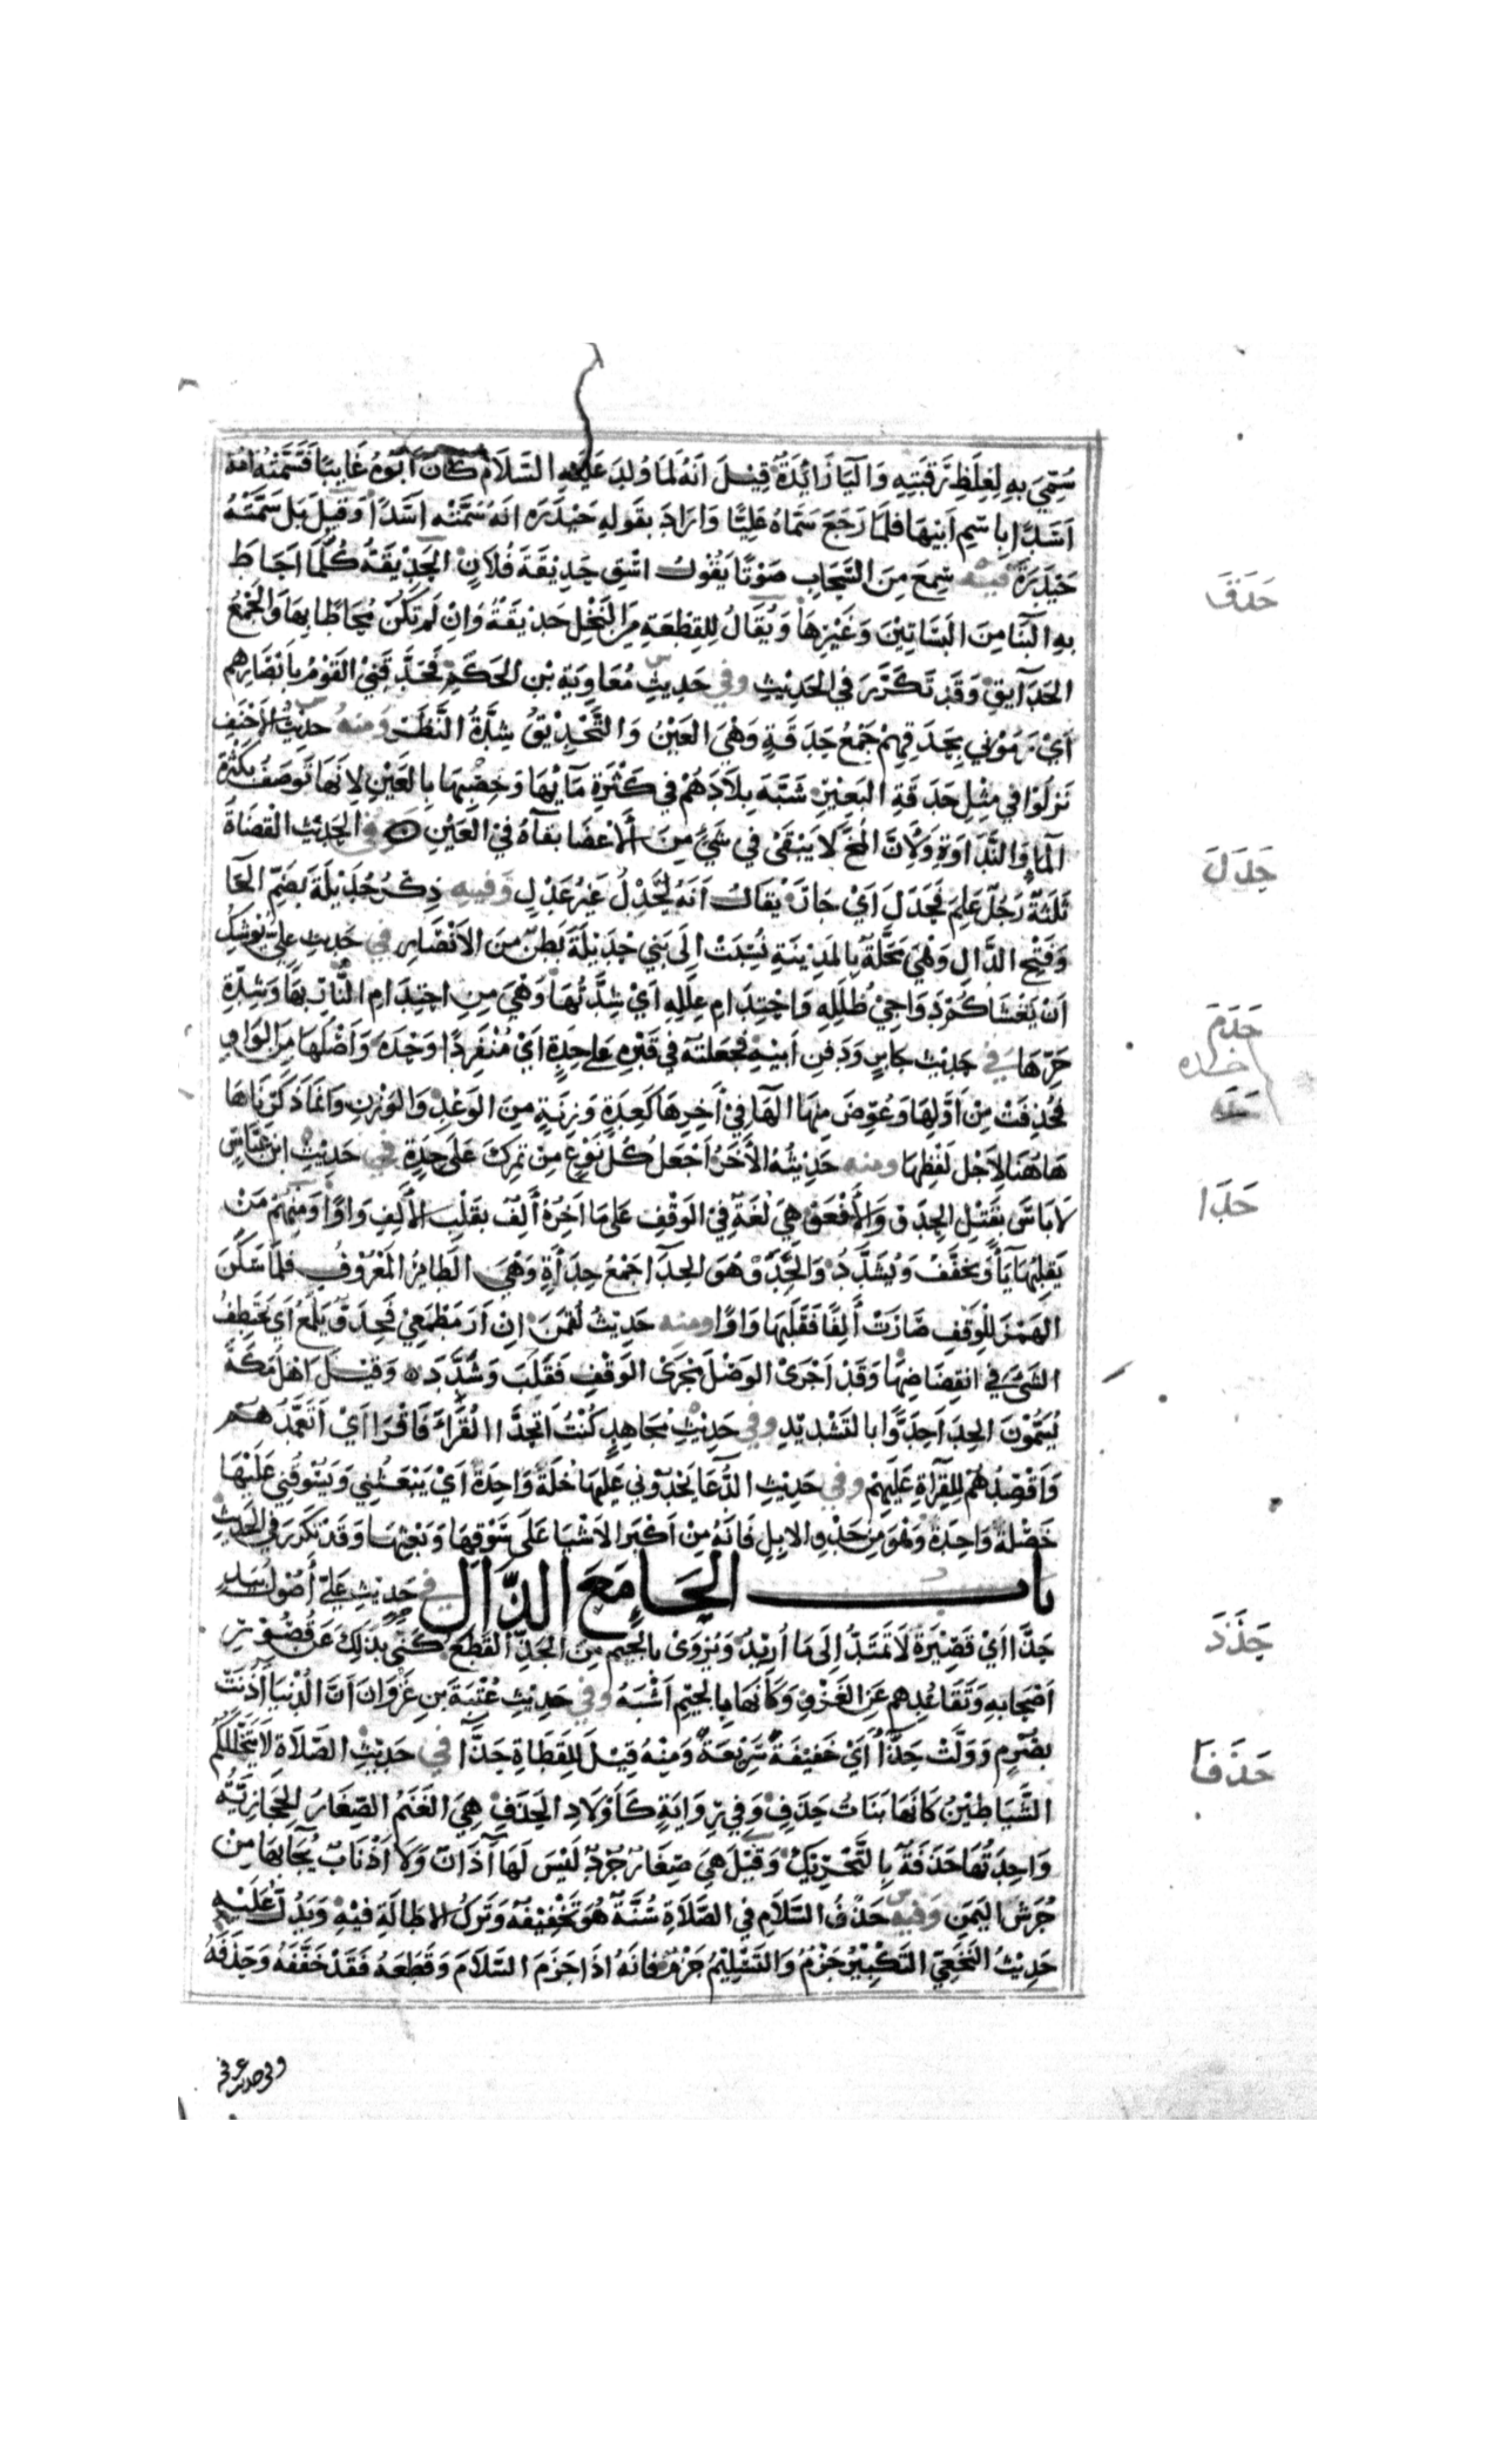 سُمِّيَ بِهِ لِغِلَظِ رَقَبَتِهِ وَاليَا زَائِدَةٌ قِيلَ اَنَهُ لَمَا وُلِدَ عَلَيْهِ السَّلَامُ كَانَ اَبُوهُ غَايِبًا فَسَمَّتْهُ امُهُ
اَسَدًا بِاسْمِ اَبِيهَا فَلَمَا رَجَعَ سَمَّاهُ عَلِيًّا وَارَادَ بِقَولِهِ حَيْدَرَه انَهُ سَمَّتْه اسَدًا وَقِيلَ بَل سَمَّتْهُ
حَيْدَرَةَ فيه سُمِعَ مِنَ السَّحَابِ صَوْتًا يَقُولُ اسْقِ حَدِيْقَةَ فُلَانٍ الحَدِيْقَةُ كُلَّمَا احَاطَ
بِهِ البِنَا مِنَ البَسَاتِيْنَ وَغَيْرِهَا وَيُقَالُ لِلقِطْعَةِ مِنَ النَّخْلِ حَدِيْقَةٌ وَانْ لَمْ تَكُنْ مُحَاطًا بِهَا وَالجَمْعُ
الحَدَآيِقِ وَقَد تَكَرَّرَ فِي الحَدِيْثِ وفي حَدِيثِ مُعَاوِيَةَ بْنِ الحَكَمِ فَحَدَّقَنِيْ القَوْمُ بِاَبْصَارِهِم
اَيْ رَمُوْنِي بِحَدَقِهِمْ جَمْعُ حَدَقَةٍ وَهْيَ العَيْنُ وَالتَّحْدِيْقُ شِدَّةُ النَّظَر ومنهُ حَدِيْثُ الاَحْنَفِ
نَزَلُوا فِي مِثْلِ حَدَقَةِ البَعِيْرِ شَبَّهَ بِلَادَهُمْ فِي كَثْرَةِ مَآئِهَا وَخِصْبِهَا بِالعَيْنِ لِاَنَهَا تُوصَفُ بِكَثْرَةِ
المَاءِ وَالنَّدَاوَةِ وَلِاَنَّ المُخَّ لَا يَبْقَى فِي شَيءٍ مِنَ الاَعْضَا بَقآءَهُ فِي العَيْنِ في الحَدِيْث القُضَاةُ
ثَلَثَةٌ رَجُلٌ عَلِمَ فَحَدَلَ اَيْ جَارَ يُقَالُ اَنَهُ لَحَدْلٌ غَيْرُ عَدْلٍ وَفيه ذِكْرُ حُدَيْلَةَ بِضَمِّ الحَا
وَفَتْحِ الدَّالِ وَهْيَ مَحَلَّةٌ بِالمَدِيْنَةِ نُسِبَتْ الَى بَنِي حُدَيْلَةَ بَطنٌ مِنَ الاَنْصَارِ في حَدِيثِ عليّ يُوْشِكُ
اَنْ يَغْشَاكُمْ دَوَاجِيْ ظُلَلِهِ وَاحْتِدَامِ عِلَلِهِ اَيْ شِدَّتُهَا وَهْيَ مِنِ احْتِدَامِ النَّارِ لَهَبِهَا وَشِدَّةِ
حَرِّهَا في حَدِيْث جَابِرٍ وَدَفنِ اَبِيْهِ فَجَعَلتُه فِي قَبْرٍ عَلى حِدَةٍ اَيْ مُنْفَرِدًا وَحْدَهُ وَاَصْلُهَا مِنَ الوَاوِ
فَحُذِفَتْ مِنْ اَوَّلِهَا وَعُوِّضَ مِنهَا الهَآ فِي اَخِرِهَا كَعِدَةٍ وَزِنَةٍ مِنَ الوَعْدِ وَالوَزْنِ وَانَّمَا ذَكَرْنَاهَا
هَاهُنَا لِاَجْلِ لَفْظِهَا ومنه حَدِيْثُهُ الاَخَرُ اجْعَلْ كُلَّ نَوْعٍ مِنْ تَمْرِكَ عَلَى حِدَةٍ في حَدِيْثِ ابن عَبَّاسٍ
لَا بَاسَ بِقَتْلِ الحِدَوْ وَالاَفْعَوْ هِيَ لُغَةٌ فِيْ الوَقْفِ عَلى مَا اَخِرُهُ اَلِفٌ بِقَلْبِ الاَلِفِ وَاوًا وَمِنْهُمْ مَنْ
يَقلِبُهَا يَآءً وَيُخَفَّفُ وَيُشَدَّدُ وَالحِدَوْ هُوَ الحِدَآ جَمْعُ حِدَأَةٍ وَهْيَ الطَائِرُ المَعْرُوْفُ فَلَمَّا سَكَّنَ
الهَمْزَ لِلْوَقْفِ صَارَتْ اَلِفًا فَقَلَبَهَا وَاوًا ومنه حَدِيْثُ لُقْمَنَ انِ اَرَ مَطْمَعِيْ فَحِدَوٌّ تَلَمَّعُ اَي تَخْتَطِفُ
الشَيءَ فِي انقِضَاضِهَا وَقَدْ اَجْرَى الوَصْلَ مَجْرَى الوَقْفِ فَقَلَبَ وَشَدَّدَ وَقِيْلَ اهْلُ مَكَّةَ
يُسَمُّوْنَ الحِدَا حِدَوًّا بِالتَشْدِيْدِ وفي حَدِيْثِ مُجَاهِدٍ كُنْتُ اَتَحَدَّا القُرَّاءَ فَاَقْرَا اَيْ اَتَعَمَّدُهُمْ
وَاَقْصِدُهُمْ لِلقِرَاةِ عَلَيْهِمْ وفي حَدِيْثِ الدُّعَا يَحْدُوْنِي عَلَيْهَا خَلَّةٌ وَاحِدَةٌ اَيْ يَبْعَثُنِي وَيَسُوقُنِي عَلَيْهَا
خَصْلَةٌ وَاحِدَةٌ وَهُوَ مِن حَدْوِ الابِلِ فَانَّهُ مِنْ اَكْبَرِ الاَشْيَا عَلَى سَوْقِهَا وَبَعْثِهَا وَقَدْ تَكَرَرَ فِي الحَدِيْثِ
باب الحَا مَعَ الذَّال في حَدِيْثِ عَليّ اُصُوْلُ بِيَدٍ
حَذَّا اَيْ قَصِيْرَةٌ لَا تَمْتَدُّ اِلَى مَا اُرِيْدُ وَيُرْوَى بِالجِيمِ مِنَ الجَذِّ القَطْعُ كَنَى بِذَلِكَ عَن قُصُوْرِ
اَصْحَابِهِ وَتَقَاعُدِهِم عَنِ الغَزْوِ وَكَاَنَّهَا بِالجِيْمِ اَشْبَهُ وفي حَدِيْثِ عُتْبَةَ بْنِ غَزْوَان اَنَّ الدُّنْيَا آذَنَتْ
بِصُرْمٍ وَوَلَّتْ حَذَّآ اَيْ خَفِيْفَةً سَرِيْعَةً وَمِنْهُ قِيْلَ لِلقَطَاةِ حَذَّآ في حَدِيْثِ الصَّلَاةِ لَا يَتَخَلَّلُكُم
الشَّيَاطِيْنُ كَانَهَا بَنَاتُ حَذَفٍ وَفِي رِوَايَةٍ كَاَوْلَادِ الحَذَفِ هِيَ الغَنَمُ الصِّغَارُ الحِجَازِيَّةُ
وَاحِدَتُهَا حَذَفَةٌ بِالتَّحْرِيْكِ وَقِيْلَ هِيَ صِغَارٌ جُرْدٌ لَيْسَ لَهَا آذَانٌ وَلَا اَذْنَابٌ يُجَآ بِهَا مِنْ
جُرَشِ اليَمَنِ وَفيه حَذْفُ السَّلَامِ فِي الصَّلَاةِ سُنَّةٌ هُوَ تَخْفِيْفُهُ وَتَرْكُ الاطَالَةِ فِيْهِ وَيَدُلُّ عَلَيْهِ
حَدِيْثُ النَّخَعِيِّ التَكْبِيْرُ جَزْمٌ وَالتَّسْلِيْمُ جَزْمٌ فَانَهُ اذَا جَزَمَ السَّلَامَ وَقَطَعَهُ فَقَدْ خَفَّفَهُ وَحَذَفَهُ
حَدَقَ
حَدَلَ
حَدَمَ
حده
حَدَا
حَذَذَ
حَذَفَا
وفي حديث عرفجه